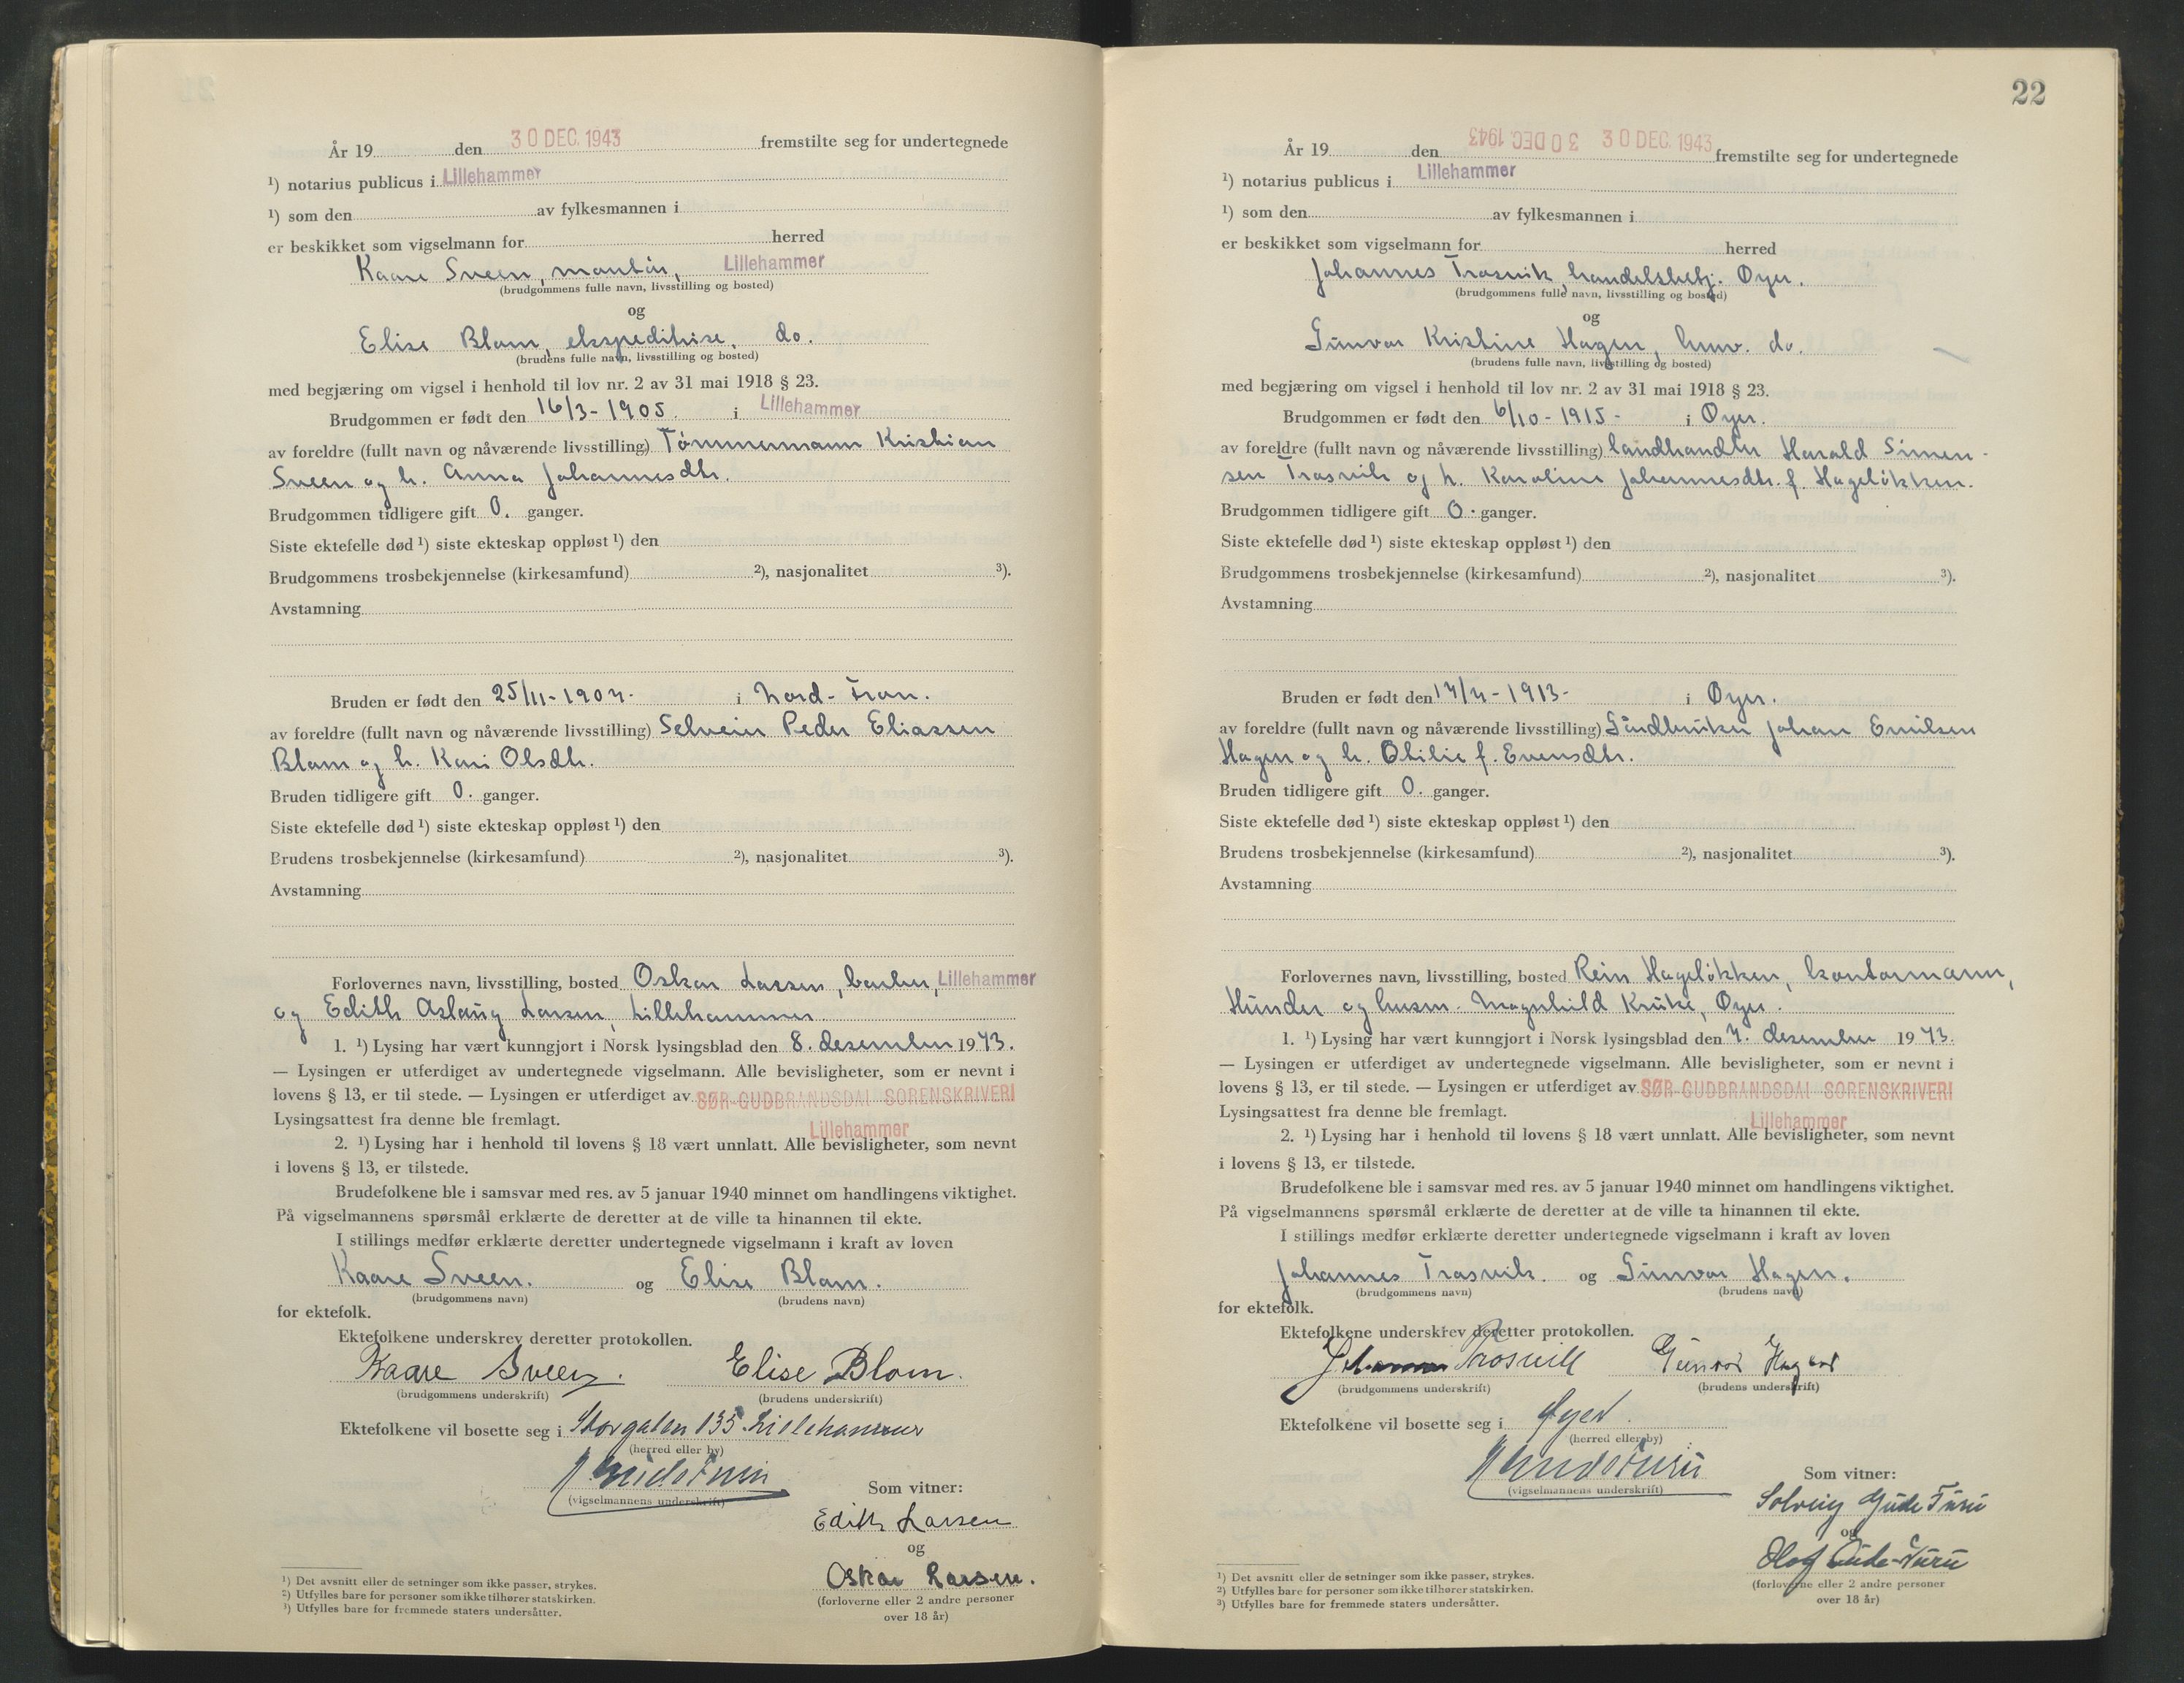 År 19 den 30 DEC. 1943 fremstilte seg for undertegnede
¹) notarius publicus i Lillehammer
¹) som den av fylkesmannen i
er beskikket som vigselmann for herred
Kaare Sveen, montør, Lillehammer
(brudgommens fulle navn, livsstilling og bosted)
og
Elise Blom, ekspeditrise, do.
(brudens fulle navn, livsstilling og bosted)
med begjæring om vigsel i henhold til lov nr. 2 av 31 mai 1918 § 23.
Brudgommen er født den 16/3-1905. i Lillehammer
av foreldre (fullt navn og nåværende livsstilling) Tömmermann Kristian
Sveen og h. Anna Johannesdtr.
Brudgommen tidligere gift 0. ganger.
Siste ektefelle død ¹) siste ekteskap oppløst ¹) den
Brudgommens trosbekjennelse (kirkesamfund) ²), nasjonalitet ³).
Avstamning
Bruden er født den 25/11-1904. i Nord-Fron.
av foreldre (fullt navn og nåværende livsstilling) Selveier Peder Eliassen
Blom og h. Kari Olsdtr.
Bruden tidligere gift 0. ganger.
Siste ektefelle død ¹) siste ekteskap oppløst ¹) den
Brudens trosbekjennelse (kirkesamfund) ²), nasjonalitet ³).
Avstamning
Forlovernes navn, livsstilling, bosted Oskar Larsen, barber, Lillehammer
og Edith Aslaug Larsen, Lillehammer
1. ¹) Lysing har vært kunngjort i Norsk lysingsblad den 8. desember 1943.
— Lysingen er utferdiget av undertegnede vigselmann. Alle bevisligheter, som er nevnt i
lovens § 13, er til stede. — Lysingen er utferdiget av SØR-GUDBRANDSDAL SORENSKRIVERI
Lysingsattest fra denne ble fremlagt. Lillehammer
2. ¹) Lysing har i henhold til lovens § 18 vært unnlatt. Alle bevisligheter, som nevnt
i lovens § 13, er tilstede.
Brudefolkene ble i samsvar med res. av 5 januar 1940 minnet om handlingens viktighet.
På vigselmannens spørsmål erklærte de deretter at de ville ta hinannen til ekte.
I stillings medfør erklærte deretter undertegnede vigselmann i kraft av loven
Kaare Sveen. og Elise Blom.
(brudgommens navn) (brudens navn)
for ektefolk.
Ektefolkene underskrev deretter protokollen.
Kaare Sveen. Elise Blom.
(brudgommens underskrift) (brudens underskrift)
Ektefolkene vil bosette seg i Storgaten 135 Lillehammer
(herred eller by)
(vigselmannens underskrift)
Som vitner:
Edith Larsen
og
Oskar Larsen.
(forloverne eller 2 andre personer
over 18 år)
¹) Det avsnitt eller de setninger som ikke passer, strykes.
²) Utfylles bare for personer som ikke tilhører statskirken.
³) Utfylles bare for fremmede staters undersåtter.
22
År 19 den 30 DEC 1943 30 DEC. 1943 fremstilte seg for undertegnede
¹) notarius publicus i Lillehammer
¹) som den av fylkesmannen i
er beskikket som vigselmann for herred
Johannes Trosvik, handelsbetj. Øyer.
(brudgommens fulle navn, livsstilling og bosted)
og
Gunvor Kristine Hagen, husv. do.
(brudens fulle navn, livsstilling og bosted)
med begjæring om vigsel i henhold til lov nr. 2 av 31 mai 1918 § 23.
Brudgommen er født den 6/10-1915- i Øyer.
av foreldre (fullt navn og nåværende livsstilling) landhandler Harald Simen-
sen Trosvik og h. Karoline Johannesdtr. f. Hageløkken.
Brudgommen tidligere gift 0. ganger.
Siste ektefelle død ¹) siste ekteskap oppløst ¹) den
Brudgommens trosbekjennelse (kirkesamfund) ²), nasjonalitet ³).
Avstamning
Bruden er født den 14/4-1913- i Øyer.
av foreldre (fullt navn og nåværende livsstilling) Gårdbruker Johan Emilsen
Hagen og h. Othilie f. Evensdtr.
Bruden tidligere gift 0. ganger.
Siste ektefelle død ¹) siste ekteskap oppløst ¹) den
Brudens trosbekjennelse (kirkesamfund) ²), nasjonalitet ³).
Avstamning
Forlovernes navn, livsstilling, bosted Rein Hageløkken, kontormann,
Hunder og husm. Magnhild Kruke, Øyer.
1. ¹) Lysing har vært kunngjort i Norsk lysingsblad den 4. desember 1943.
— Lysingen er utferdiget av undertegnede vigselmann. Alle bevisligheter, som er nevnt i
lovens § 13, er til stede. — Lysingen er utferdiget av SØR-GUDBRANDSDAL SORENSKRIVERI
Lysingsattest fra denne ble fremlagt. Lillehammer
2. ¹) Lysing har i henhold til lovens § 18 vært unnlatt. Alle bevisligheter, som nevnt
i lovens § 13, er tilstede.
Brudefolkene ble i samsvar med res. av 5 januar 1940 minnet om handlingens viktighet.
På vigselmannens spørsmål erklærte de deretter at de ville ta hinannen til ekte.
I stillings medfør erklærte deretter undertegnede vigselmann i kraft av loven
Johannes Trosvik. og Gunvor Hagen.
(brudgommens navn) (brudens navn)
for ektefolk.
Ektefolkene underskrev deretter protokollen.
Johannes Trosvik Gunvor Hagen
(brudgommens underskrift) (brudens underskrift)
Ektefolkene vil bosette seg i Øyer.
(herred eller by)
(vigselmannens underskrift)
Som vitner:
Solveig Gude Furu
og
Olaf Gude-Furu
(forloverne eller 2 andre personer
over 18 år)
¹) Det avsnitt eller de setninger som ikke passer, strykes.
²) Utfylles bare for personer som ikke tilhører statskirken.
³) Utfylles bare for fremmede staters undersåtter.